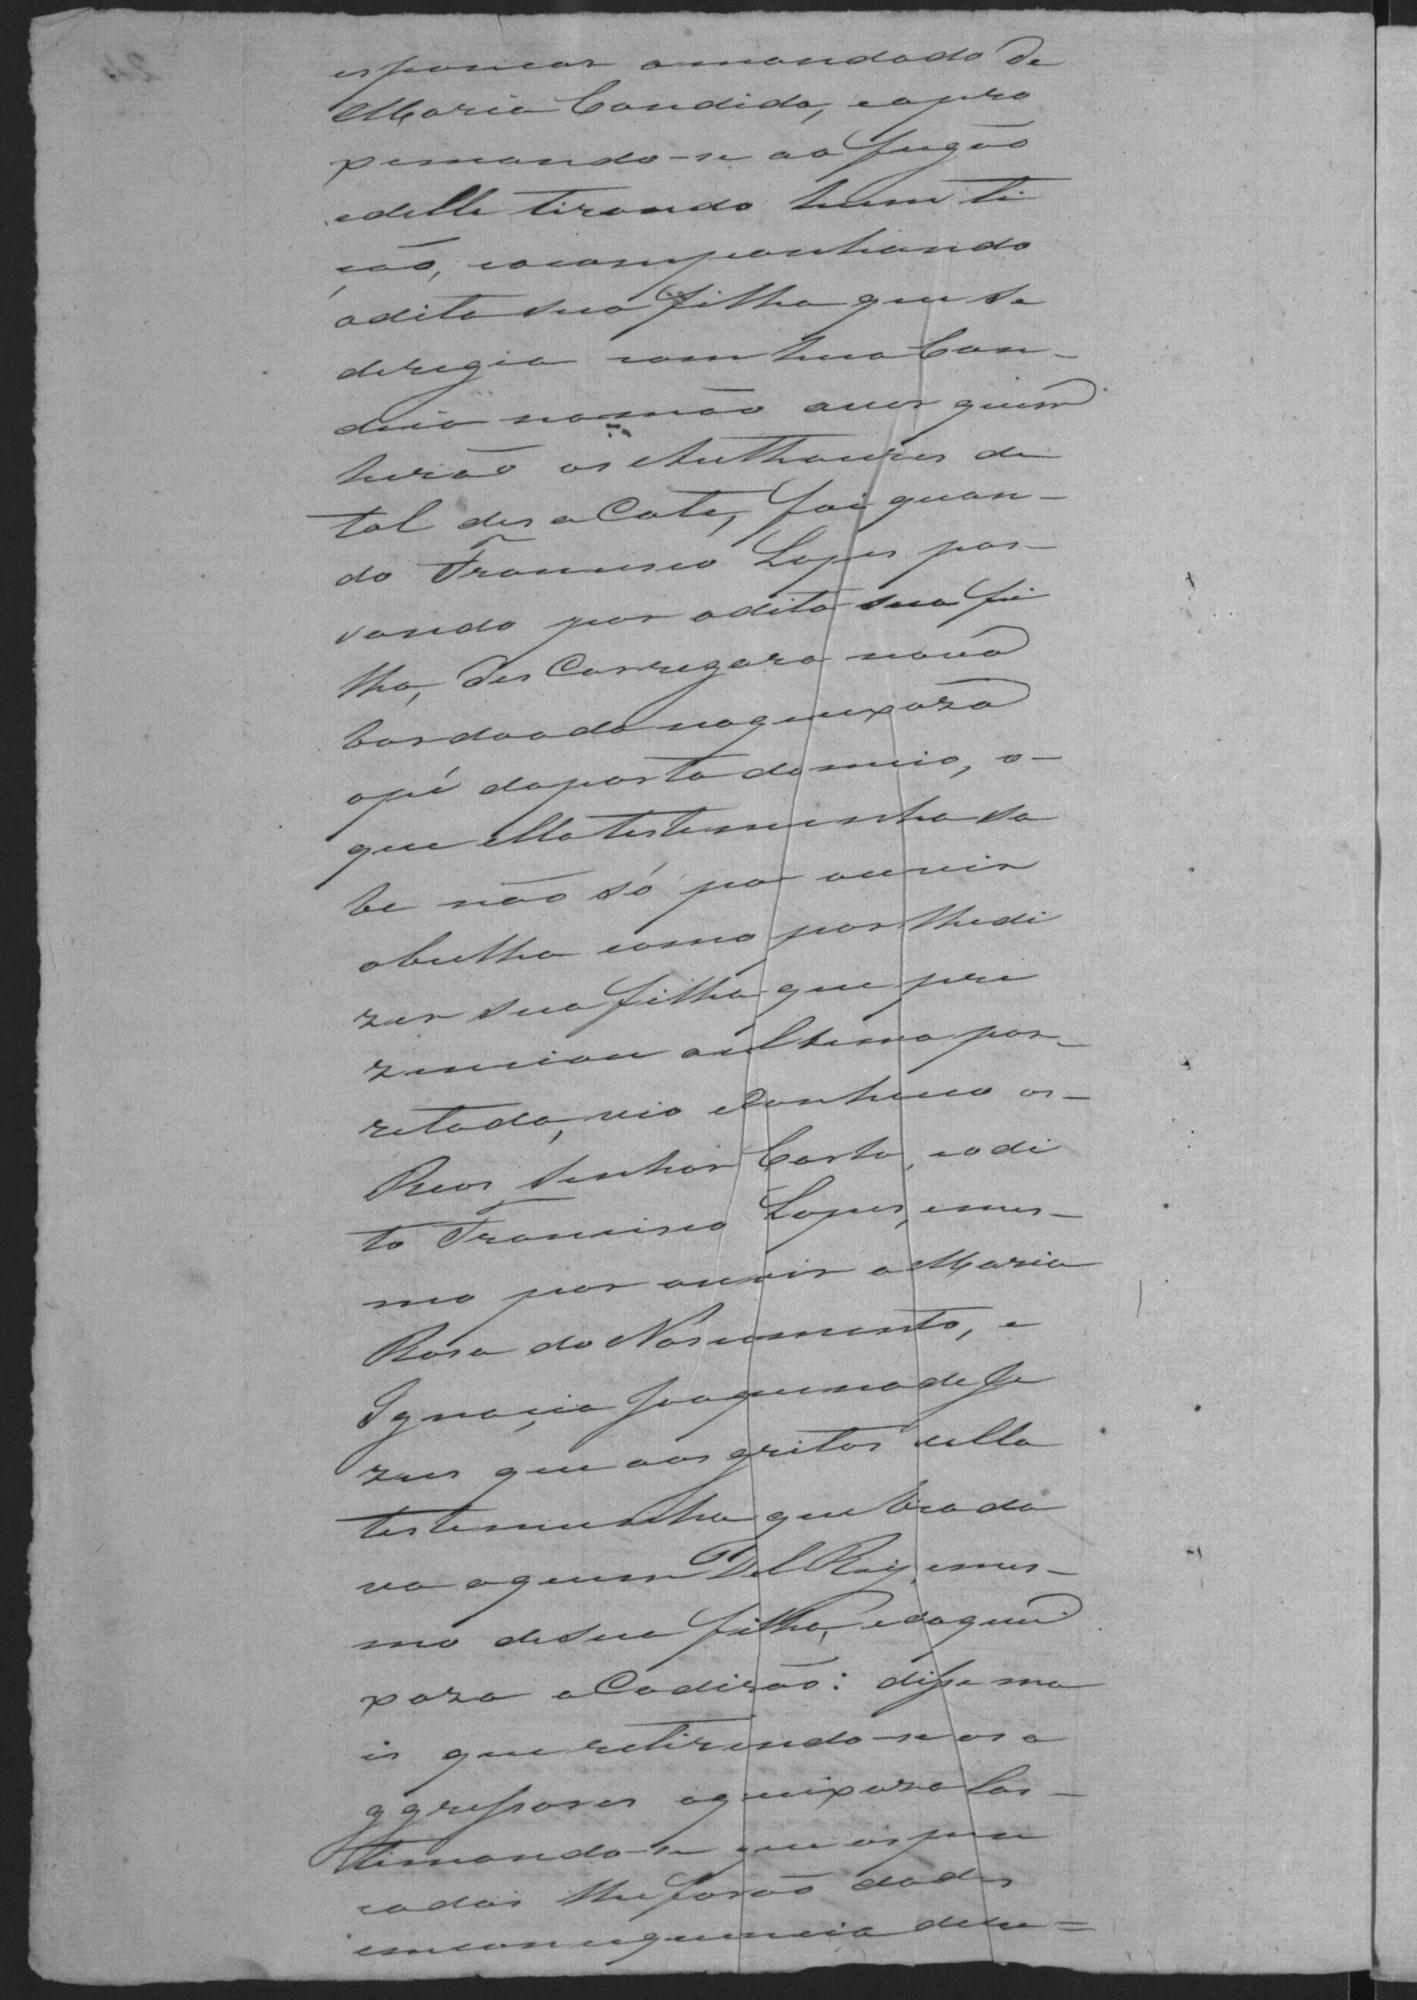 espancar amandado de
Maria Candida, eapro
ximando-se ao fugão
edelle tirando hum ti
ção, eacompanhando
adita sua filha que se
deregia com hua Can-
deia namão aver quem
herão os Authoures de
tal desaCato, foi quan-
do Francisco Lopes pas-
sando por adita sua fi
lha, desCarregara nova
bordoada naqueixoza
apé daporta domeio, o-
que ella testemunha sa
be não só por ouvir
abulha como por lhedi
zer sua filha que pre
zenciou aultima por-
retada, eio eConheceo os-
Reos Senhor Costa, eodi
to Francisco Lopes, emes-
mo por ouvir a Maria
Rosa do Nascimento, e
Ignacia Joaquina de Je
zus que aos gritos della
testemunha que brada
va aquem Del Rey, emes-
mo desua filha, edaquei
xoza aCodirão: disse ma
is que retirando-se os a
ggressores aqueixoza las-
timando-se que as pan
cadas lhe forão dadas
emconsequencia dehu=